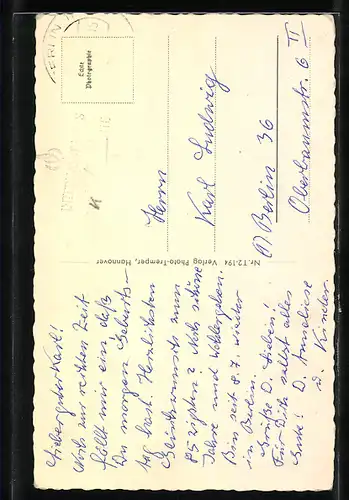 Lieber guter Karl!
Noch zur rechten Zeit
fällt mir ein, daß
Du morgen Geburts-
tag hast. Herzlichsten
Glückwunsch zum
85zigsten! Noch schöne
Jahre und Wohlergehen.
Bin seit 8.7. wieder
in Berlin.
Grüße D. Lieben!
Für Dich selbst alles
Gute! D. Anneliese
u. Kinder.
Nr. T2-194 Verlag Photo-Tremper, Hannover
Echte
Photographie
Herrn
Karl Ludwig
Berlin 36
Oberbaumstr. 6 II